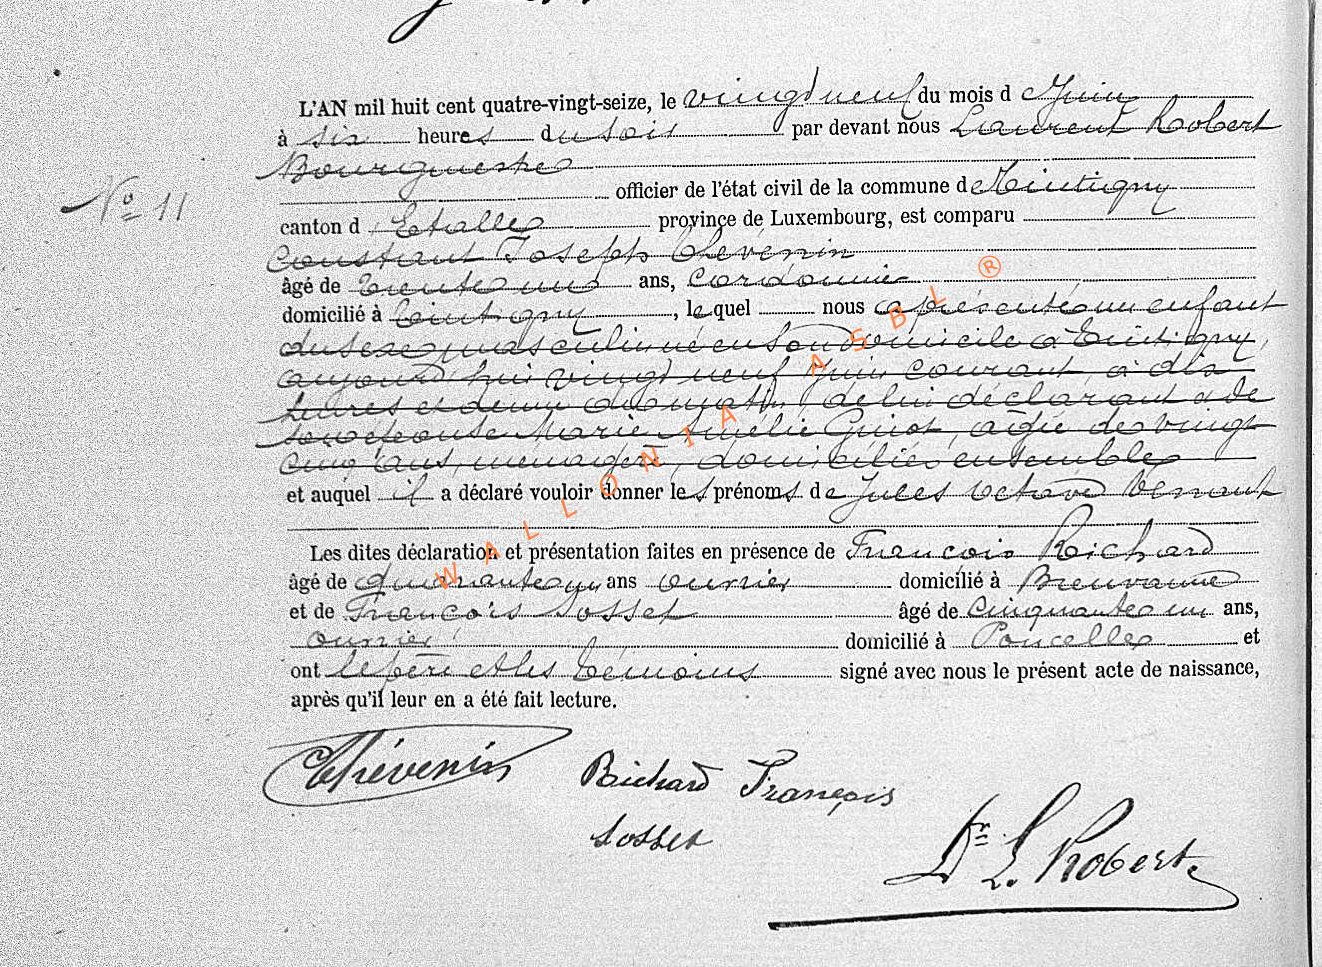 L'AN mil huit cent quatre-vingt-seize, le vingt neuf du mois d e Juin
à six heures du soir par devant nous Laurent Robert
Bourgmestre
officier de l'état civil de la commune de Tintigny
N° 11
canton d' Etalle province de Luxembourg, est comparu
Constant Joseph Thévenin
âgé de trente un ans, cordonnier
domicilié à Tintigny, lequel nous a présenté un enfant
du sexe masculin né en son domicile à Tintigny,
aujourd'hui vingt neuf Juin courant à dix
heures et demie du matin, de lui déclarant et de
son épouse Marie Amélie Guiot, âgée de vingt
cinq ans, ménagère, domiciliés ensemble
et auquel il a déclaré vouloir donner les prénoms de Jules Octave
Les dites déclaration et présentation faites en présence de François Richard
âgé de quarante un ans ouvrier domicilié à Breuvanne
et de François Sosset âgé de cinquante un ans,
ouvrier domicilié à Poncelle et
ont le père et les témoins signé avec nous le présent acte de naissance,
après qu'il leur en a été fait lecture.
Thévenin Richard François
Sosset
Dr L. Robert
WALLONIA ASBL ®